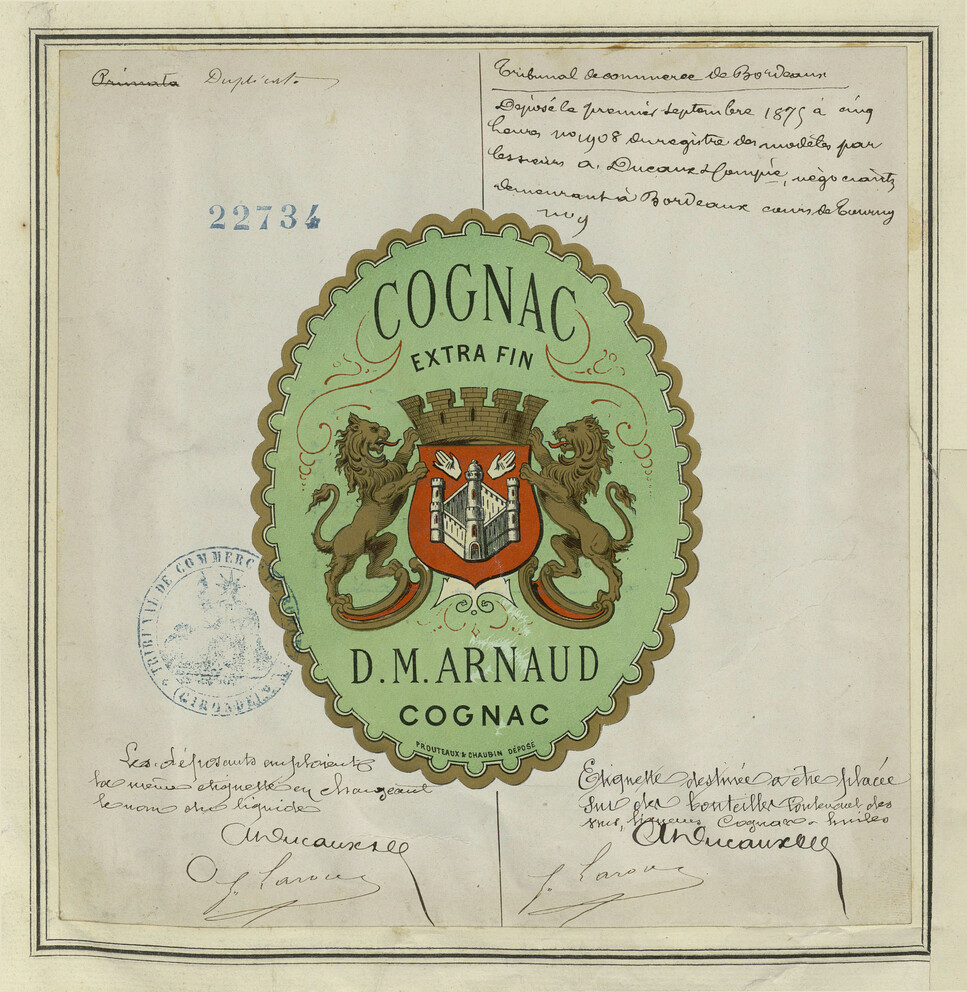 Primata Duplicata
Tribunal de commerce de Bordeaux
Déposé le premier septembre 1875 à cinq
heures no 1908 du registre des modèles par
les sieurs A. Ducaux & Compie, négociants
demeurant à Bordeaux cours de Tourny
no 9
22734
COGNAC
EXTRA FIN
D.M. ARNAUD
COGNAC
PROUTEAUX & CHAUBIN DÉPOSÉ
TRIBUNAL DE COMMERCE
(GIRONDE)
Les déposants emploient
la même étiquette en changeant
le nom du liquide
Etiquette destinée a être placée
sur des bouteilles contenant des
vins, liqueurs Cognac & huiles